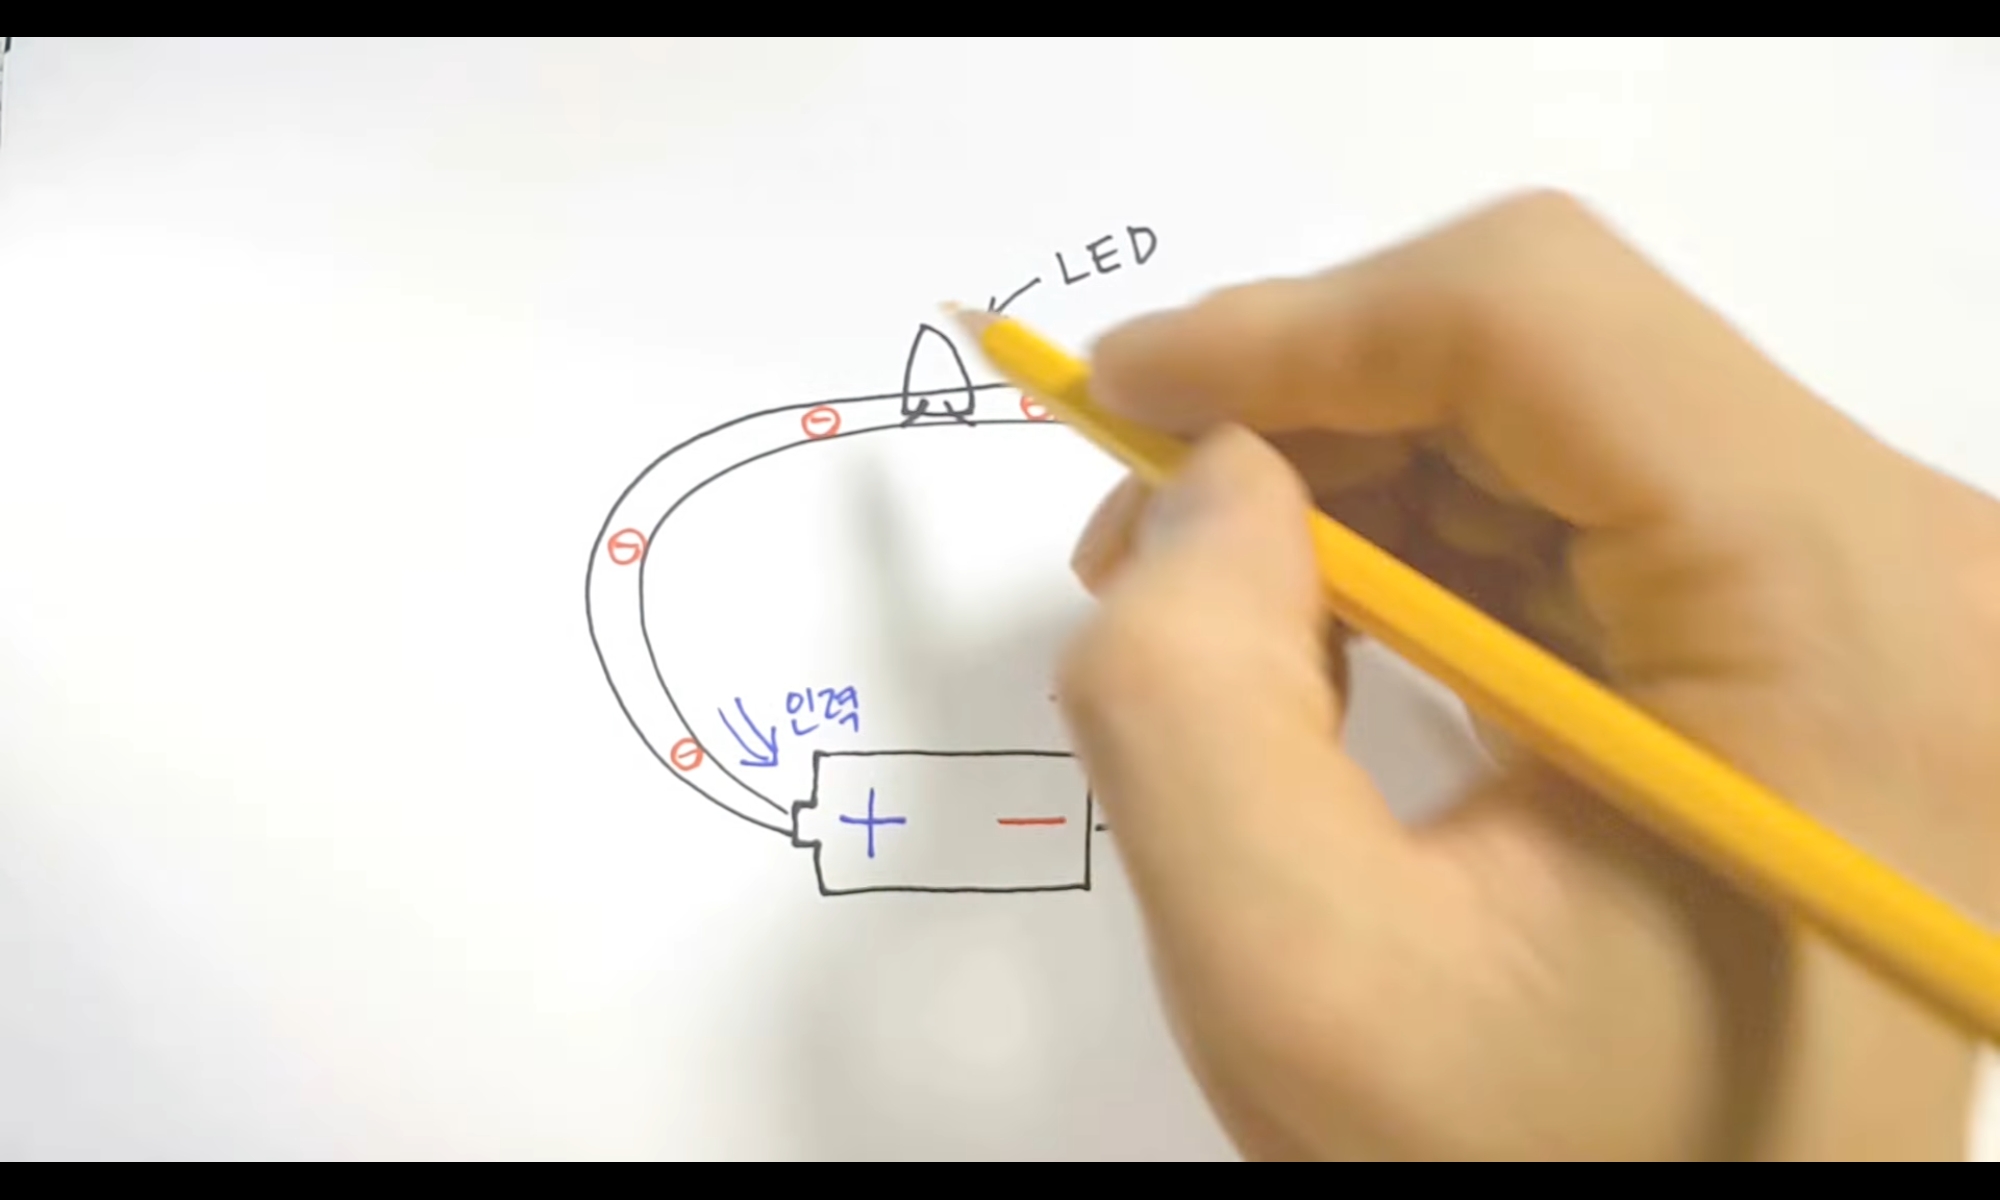 LED
인력
+ −